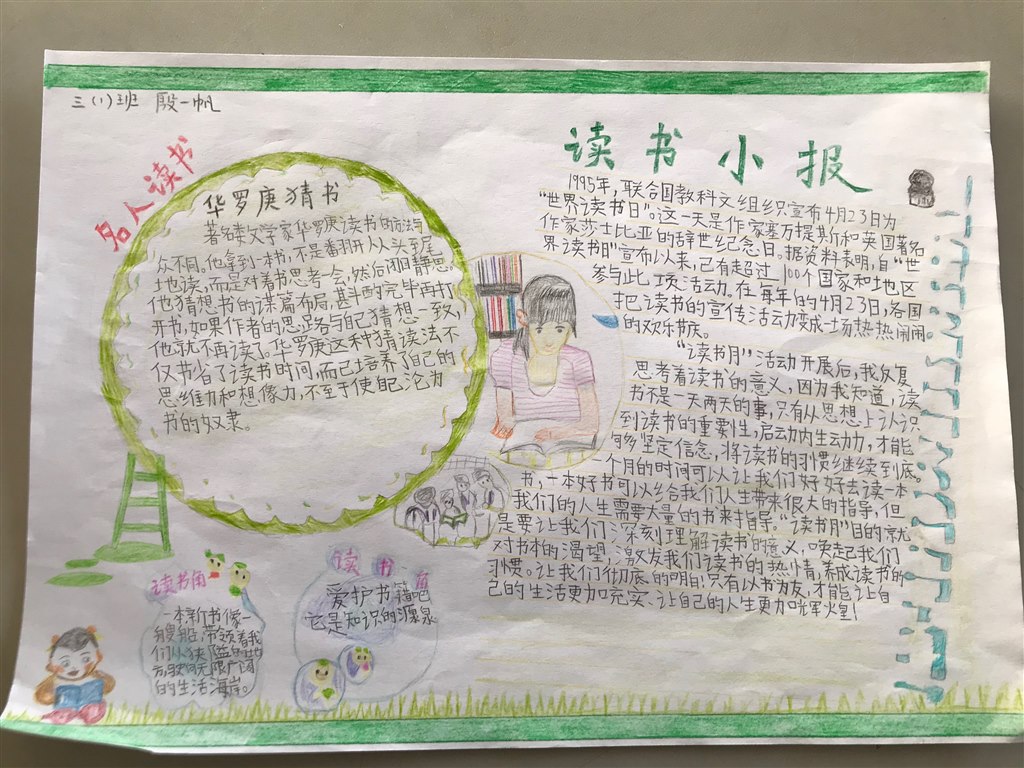 三(1)班 殷一帆
名人读书
华罗庚猜书
著名数学家华罗庚读书的方法与
众不同。他拿到一本书,不是翻开从头到尾
地读,而是对着书思考一会,然后闭目静思,
他猜想书的谋篇布局,斟酌完毕再打
开书,如果作者的思路与自己猜想一致,
他就不再读了。华罗庚这种猜读法不
仅节省了读书时间,而已培养了自己的
思维力和想像力,不至于使自己沦为
书的奴隶。
读书小报
1995年,联合国教科文组织宣布4月23日为
“世界读书日”。这一天是作家塞万提斯和英国著名
作家莎士比亚的辞世纪念日。据资料表明,自“世
界读书日”宣布以来,己有超过100个国家和地区
参与此项活动。在每年的4月23日,各国
把读书的宣传活动变成一场热热闹闹
的欢乐节庆。
“读书月”活动开展后,我反复
思考着读书的意义,因为我知道,读
书不是一天两天的事,只有从思想上认识
到读书的重要性,启动内生动力,才能
够坚定信念,将读书的习惯继续到底。
一个月的时间可以让我们好好去读一本
书,一本好书可以给我们人生带来很大的指导,但
我们的人生需要大量的书来指导。“读书月”目的就
是要让我们深刻理解读书的意义,唤起我们
对书本的渴望,激发我们读书的热情,养成读书的
习惯。让我们彻底的明白,只有以书为友,才能让自
己的生活更加充实、让自己的人生更加光辉火皇!
读书角
一本新书像一
艘船,带领着我
们从狭隘的地
方,驶向无限广阔
的生活海岸。
读书角
爱护书籍吧
它是知识的源泉